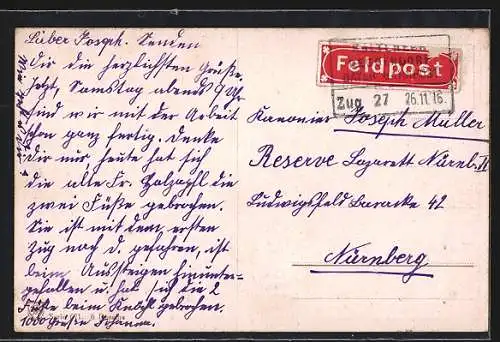 Lieber Joseph. Senden
Dir die herzlichsten Grüße.
Jetzt, Samstag abends 9 Uhr
sind wir mit der Arbeit
schon ganz fertig. Denke
Dir nur, heute hat sich
die alte Fr. die
zwei Füße gebrochen.
Sie ist mit dem ersten
Zug nach D. gefahren, ist
beim Aussteigen hinunter-
gefallen u. hat sich die 2
Füße beim gebrochen.
1000 Grüße Johanna.
Feldpost
Zug 27 26.11.16.
Kanonier Joseph Müller
Reserve Lazarett Nürnb. II
Ludwigsfeld Baracke 42
Nürnberg